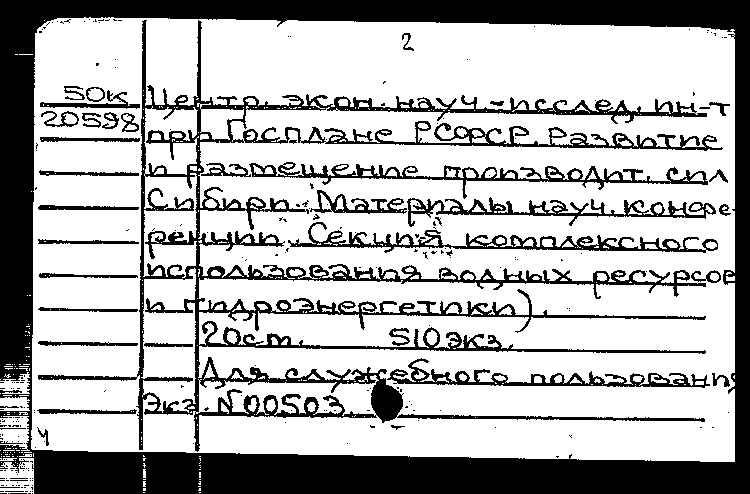 2
50к Центр. экон. науч.-исслед. ин-т
20598 при Госплане РСФСР. Развитие
и размещение производит. сил
Сибири. Материалы науч. конфе-
ренции. Секция комплексного
использования водных ресурсов
и гидроэнергетики).
20см. 510экз.
Для служебного пользования
Экз. №00503.
Ч